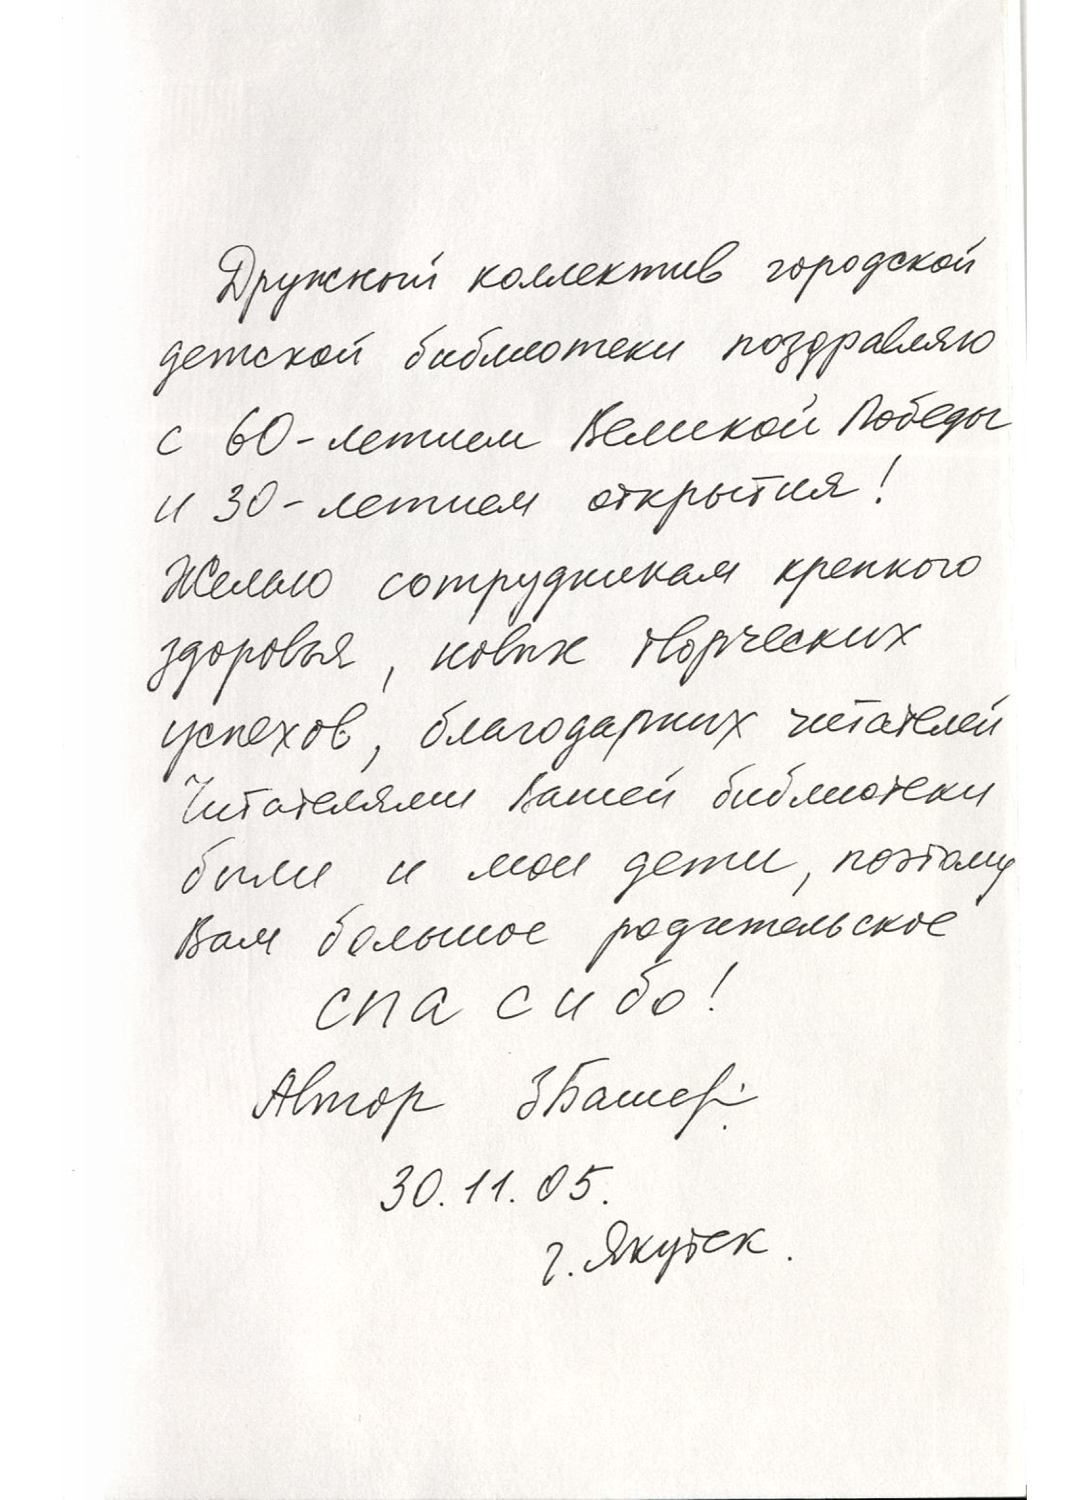 Дружный коллектив городской
детской библиотеки поздравляю
с 60-летием Великой Победы
и 30-летием открытия!
Желаю сотрудникам крепкого
здоровья, новых творческих
успехов, благодарных читателей
Читателями Вашей библиотеки
были и мои дети, поэтому
Вам большое родительское
спасибо!
Автор
30.11.05.
г. Якутск.